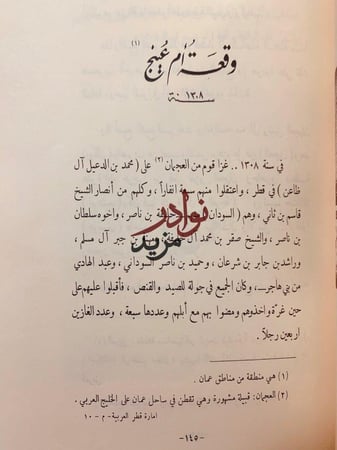 وقعة أم عُينج (١)
سنة ١٣٠٨
في سنة ١٣٠٨ .. غزا قوم من العجمان (٢) على (محمد بن الدعيل آل
ظاعن) في قطر ، واعتقلوا منهم سبعة انفاراً ، وكلهم من أنصار الشيخ
قاسم بن ثاني ، وهم (السودان بن ناصر ، واخوه سلطان
بن ناصر ، والشيخ صقر بن محمد آل بن جبر آل مسلم ،
وراشد بن جابر بن شرعان ، وحميد بن ناصر السوداني ، وعبد الهادي
من بني هاجر ـــ وكان الجميع في جولة للصيد والقنص ، فأقبلوا عليهم على
حين غرّة واخذوهم ومضوا بهم مع أبلهم وعددها سبعة ، وعدد الغازين
اربعين رجلاً .
نوادر
مزيد
(١) هي منطقة من مناطق عمان .
(٢) العجمان : قبيلة مشهورة وهي تقطن في ساحل عمان على الخليج العربي .
امارة قطر العربية - م - ١٠
- ١٤٥ -